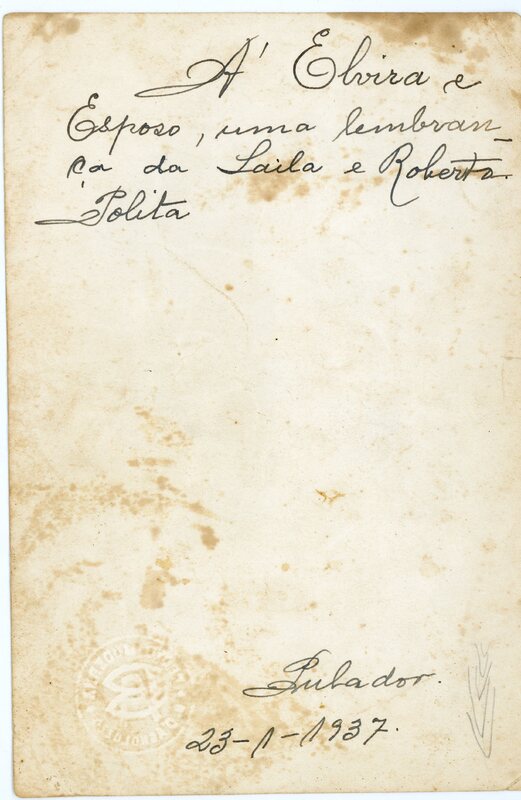 Á Elvira e
Esposo, uma lembran-
ça da Laila e Roberto.
Polita
23-1-1937.